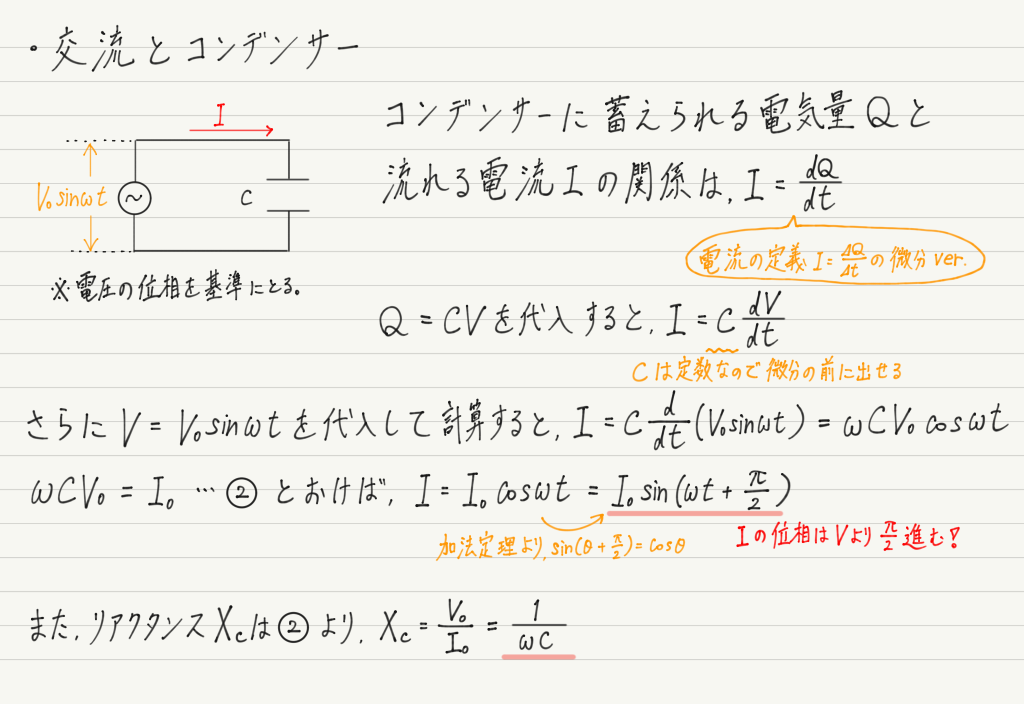 ・交流とコンデンサー
I
V₀sinωt
C
※電圧の位相を基準にとる。
コンデンサーに蓄えられる電気量Qと
流れる電流Iの関係は, I = dQ/dt
電流の定義 I = ΔQ/Δt の微分ver.
Q = CVを代入すると, I = C dV/dt
Cは定数なので微分の前に出せる
さらに V = V₀sinωt を代入して計算すると, I = C d/dt (V₀sinωt) = ωCV₀cosωt
ωCV₀ = I₀ … ② とおけば, I = I₀cosωt = I₀sin(ωt + π/2)
加法定理より, sin(θ + π/2) = cosθ
Iの位相はVより π/2 進む!
また, リアクタンスXcは②より, Xc = V₀/I₀ = 1/ωC